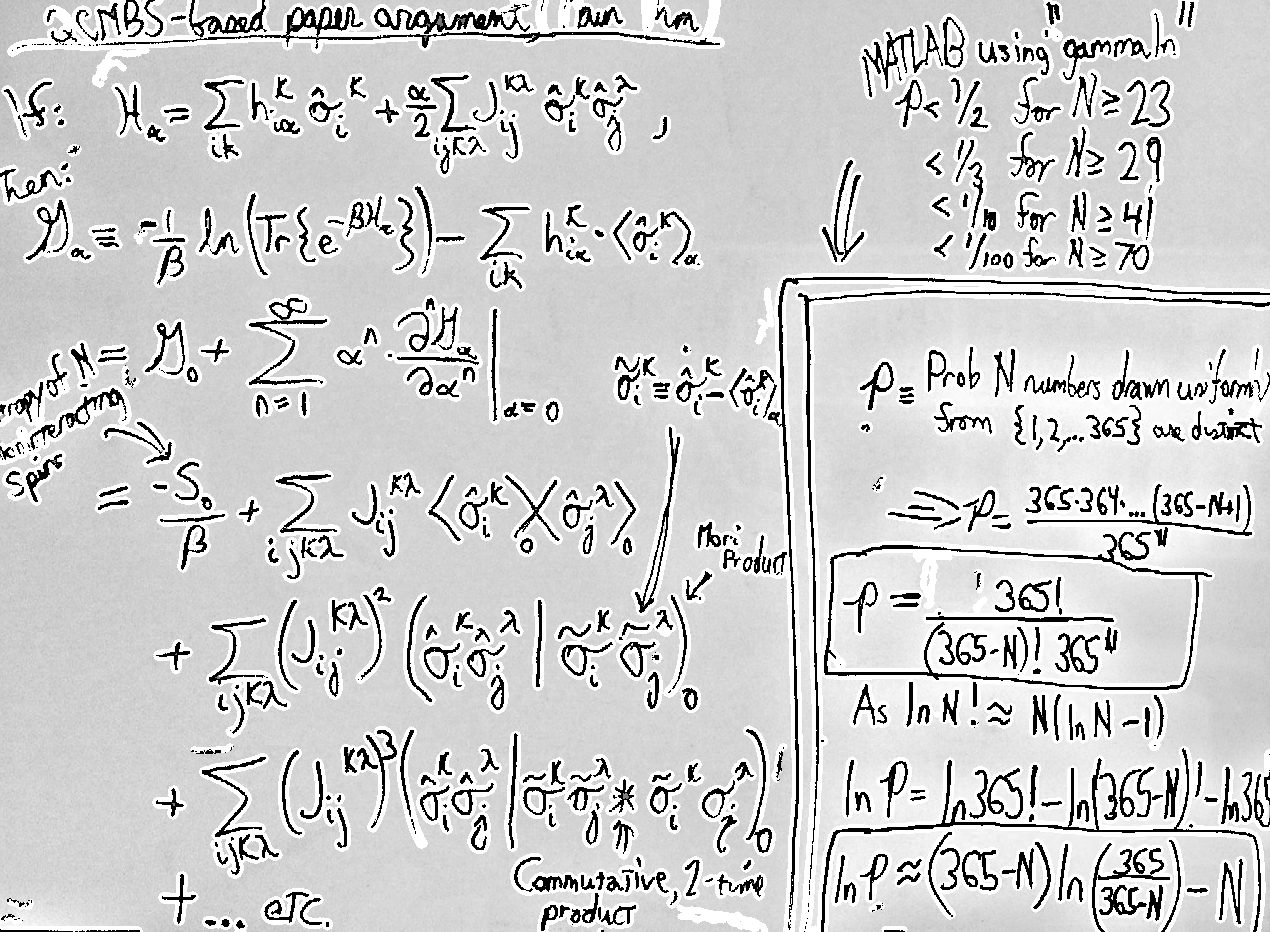 CMBS-based paper argument,
If: H_α = Σ_{ik} h_{iα}^κ σ̂_i^κ + α/2 Σ_{ijκλ} J_{ij}^{κλ} σ̂_i^κ σ̂_j^λ ,
Then:
G_α ≡ -1/β ln(Tr{e^{-βH_α}}) - Σ_{ik} h_{iα}^κ · ⟨σ̂_i^κ⟩_α
= G_0 + Σ_{n=1}^∞ α^n · ∂^n G_α / ∂α^n |_{α=0}
σ̃_i^κ ≡ σ̂_i^κ - ⟨σ̂_i^κ⟩_α
of N
Spins
= -S_0/β + Σ_{ijκλ} J_{ij}^{κλ} ⟨σ̂_i^κ⟩_0 ⟨σ̂_j^λ⟩_0
Mori
Product
+ Σ_{ijκλ} (J_{ij}^{κλ})^2 (σ̂_i^κ σ̂_j^λ | σ̃_i^κ σ̃_j^λ)_0
+ Σ_{ijκλ} (J_{ij}^{κλ})^3 (σ̂_i^κ σ̂_j^λ | σ̃_i^κ σ̃_j^λ * σ̃_i^κ σ_j^λ)_0
Commutative, 2-time
product
+ ... etc.
MATLAB using "gammaln"
p < 1/2 for N ≥ 23
< 1/3 for N ≥ 29
< 1/10 for N ≥ 41
< 1/100 for N ≥ 70
p ≡ Prob N numbers drawn uniformly
from {1,2,...365} are distinct
⇒ p = 365·364·...(365-N+1) / 365^N
p = 365! / (365-N)! 365^N
As ln N! ≈ N(ln N - 1)
ln p = ln 365! - ln(365-N)! - ln 365
ln p ≈ (365-N) ln(365/(365-N)) - N